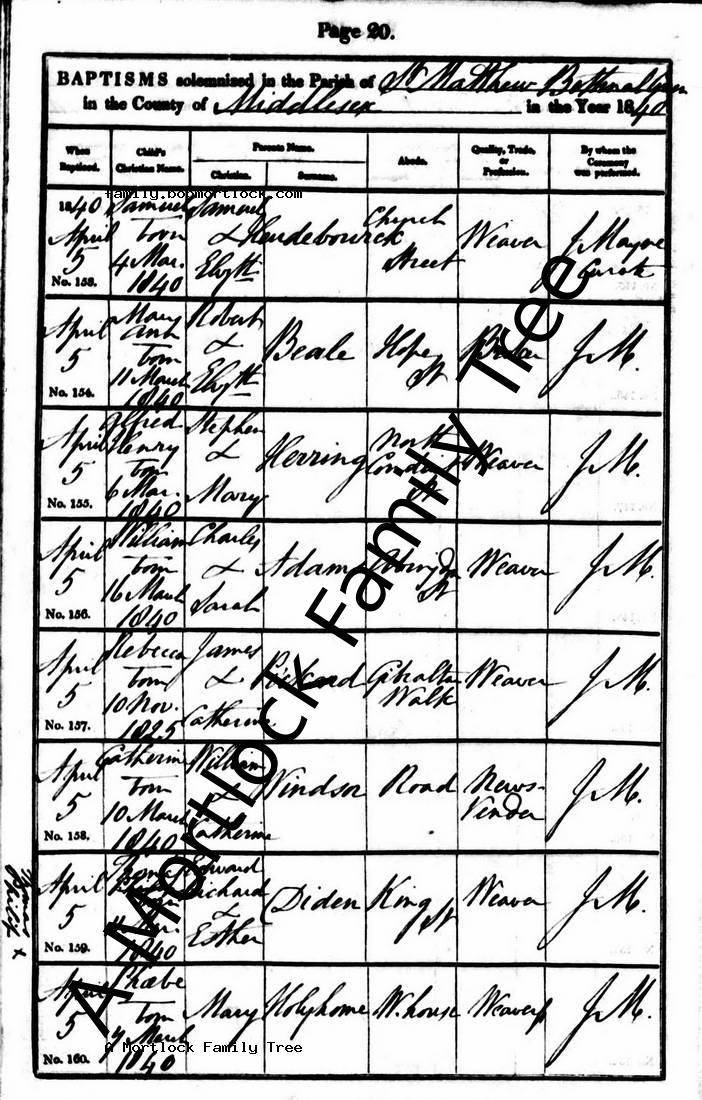 Page 20.
BAPTISMS solemnized in the Parish of St Matthew Bethnal Green
in the County of Middlesex in the Year 1840
When Baptized.
Child's Christian Name.
Parents Name.
Christian.
Surname.
Abode.
Quality, Trade, or Profession.
By whom the Ceremony was performed.
family.bobmortlock.com
1840
April
5
No. 153.
Samuel
born
4 Mar.
1840
Samuel
&
Elizth
Church
Street
Weaver
J Mayne
Curate
April
5
No. 154.
Mary
Ann
born
11 March
1840
Robert
&
Elizth
Beale
Hope
St
J M.
April
5
No. 155.
Alfred
Henry
born
6 Mar.
1840
Stephen
&
Mary
Herring
North
Conduit
St
Weaver
J M.
April
5
No. 156.
William
born
16 March
1840
Charles
&
Sarah
Adams
St
Weaver
J M.
April
5
No. 157.
Rebecca
born
10 Nov.
1825
James
&
Catherine
Gibralta
Walk
Weaver
J M.
April
5
No. 158.
Catherine
born
10 March
1840
William
&
Catherine
Windsor
Road
News-
Vender
J M.
April
5
No. 159.
1840
Edward
Richard
&
Esther
Diden
King
St
Weaver
J M.
Thomas
April
5
No. 160.
Phœbe
born
4 March
1840
Mary
Holyhome
W.house
Weaver
J M.
A Mortlock Family Tree
A Mortlock Family Tree